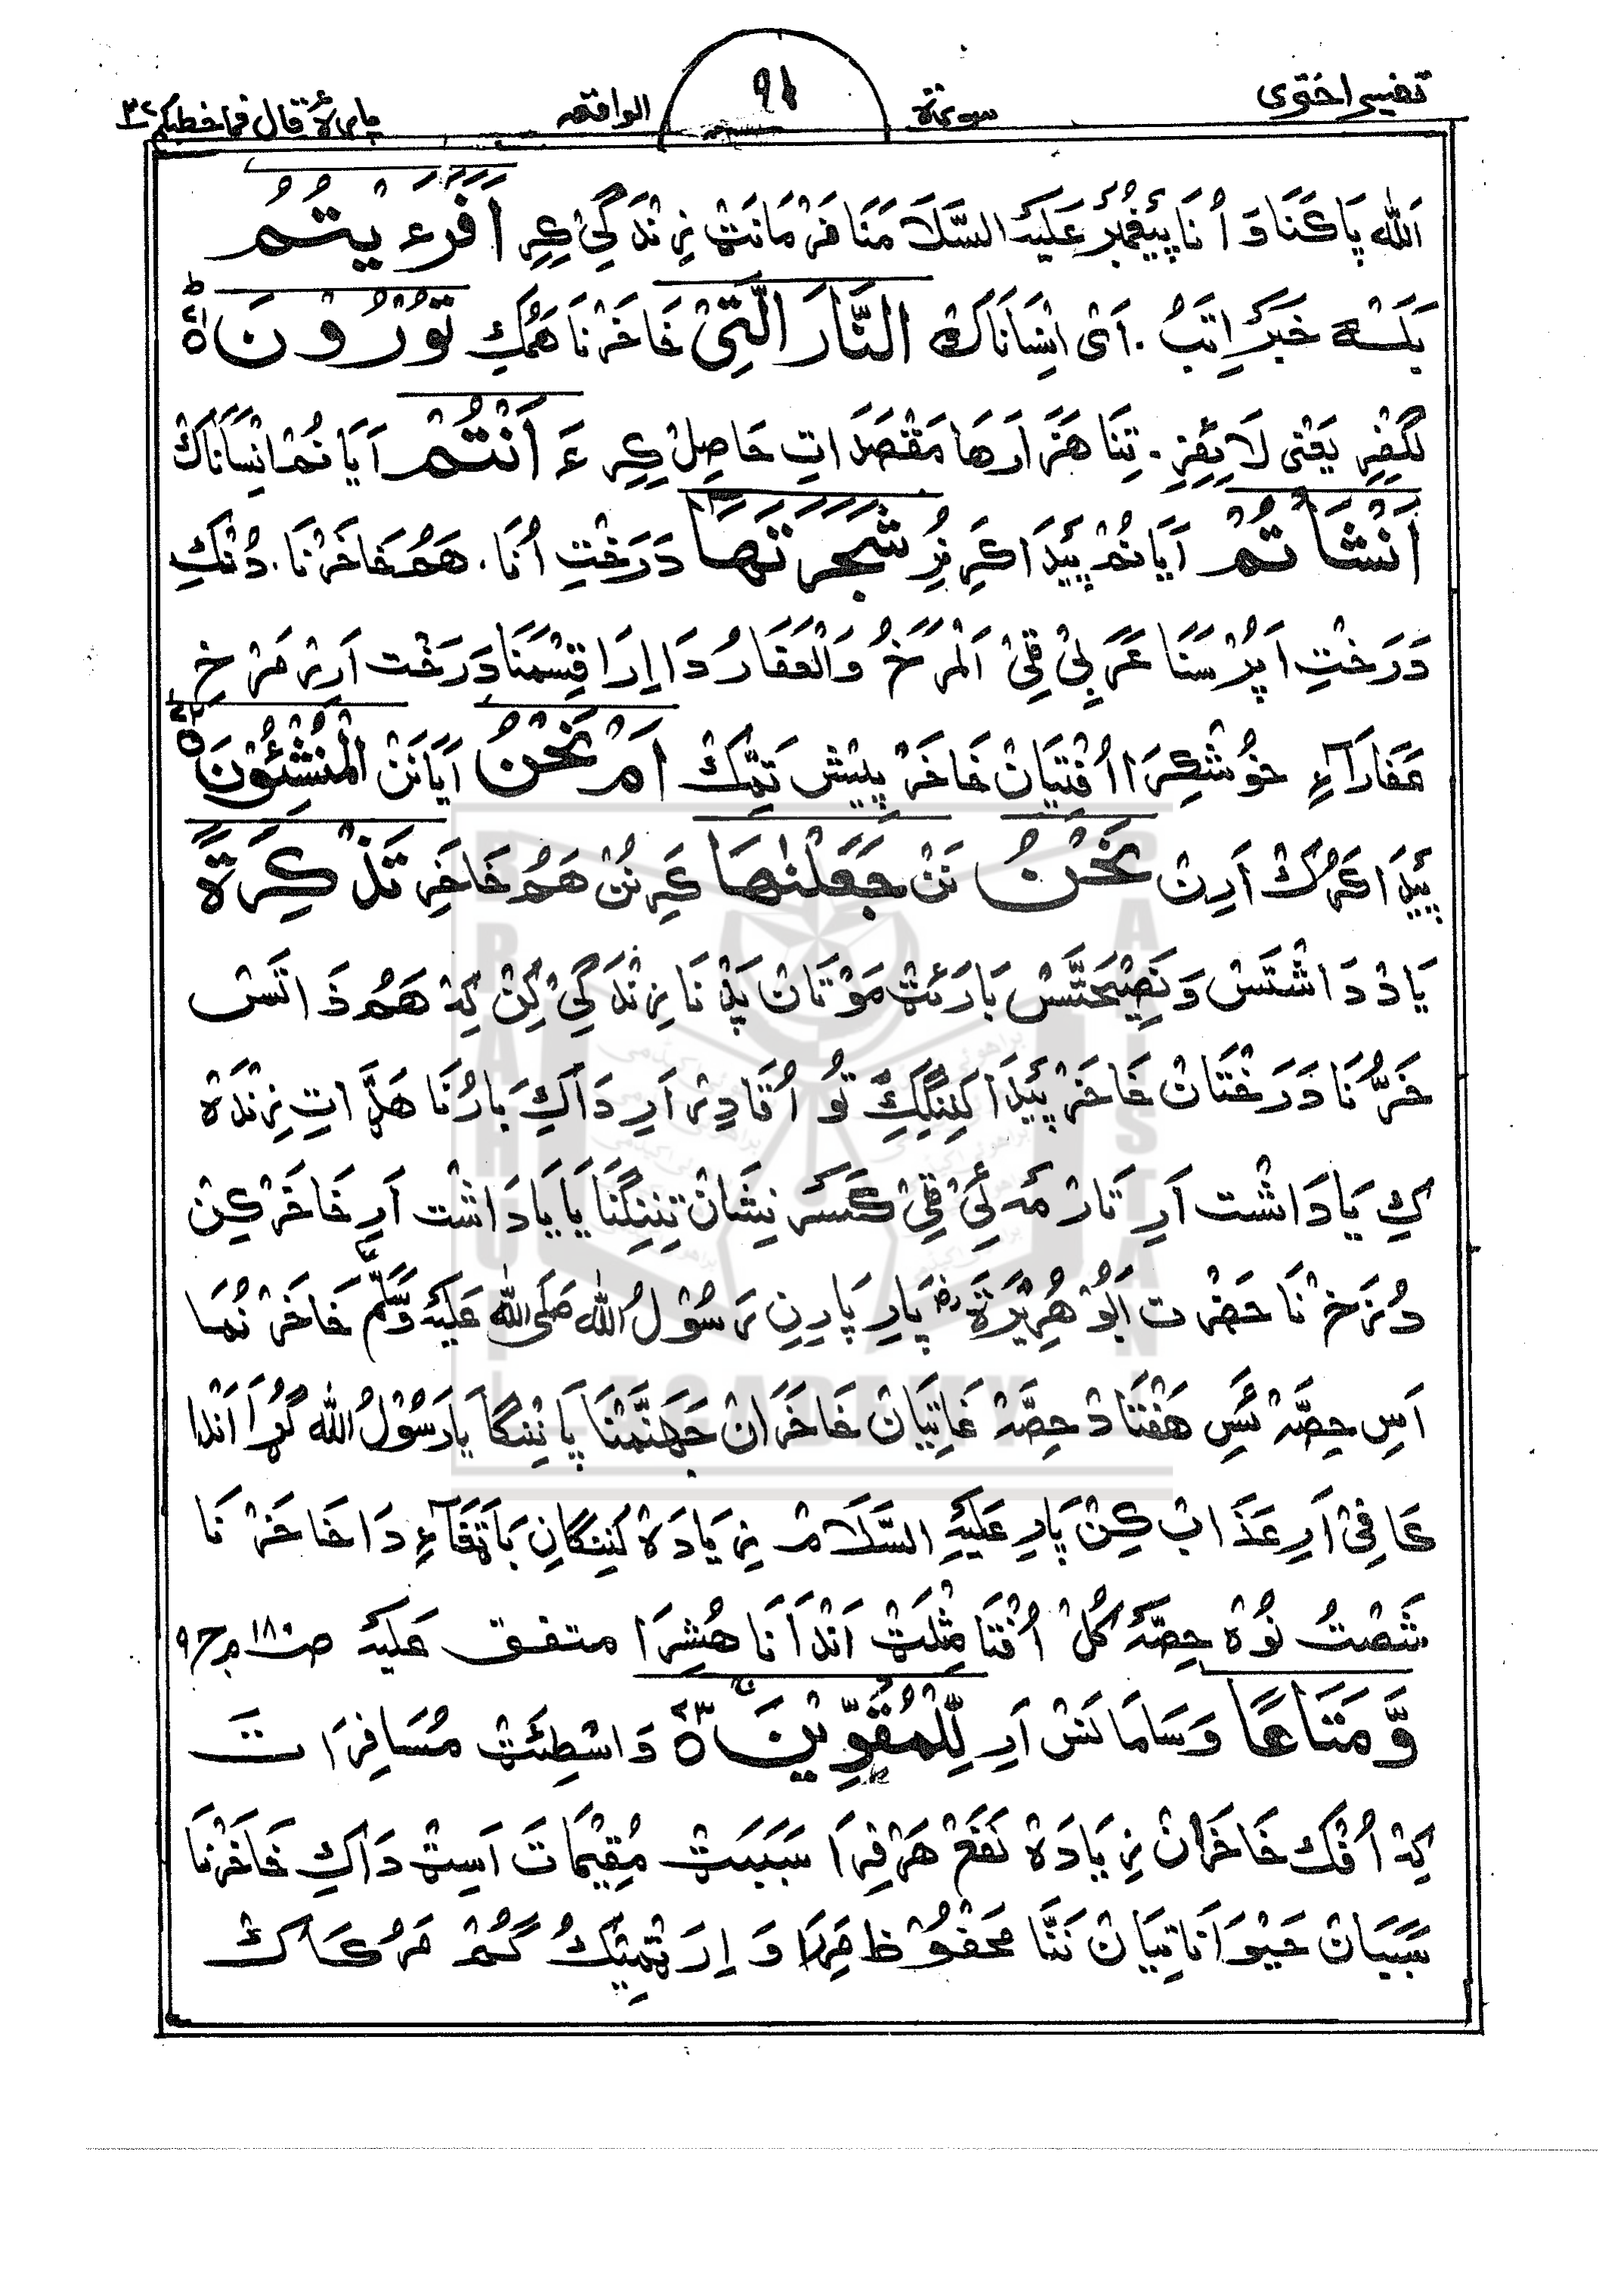 تفسیر اختری سورة ۹۱ الواقعه پارہ قال فما خطبکم ۲۷
اَللّٰه پَاكَنَا وَ اُنَا پَیْغَمْبَرْ عَلَیْهِ السَّلَامَنَا فَرْمَانَتْ زِنْدَگِیْ كِرِ اَفَرَءَيْتُمُ
خَبَرْ اِتَبْ . اَیْ اِنْسَانَاكْ النَّارَ الَّتِيْ خَاخَرْنَا هَمُكِ تُوْرُوْنَ ۷۱ ط
لَگِفِرِ يَعْنِی لَائِفِرِ . تِنَا هَرَا مَقْصَدَاتِ حَاصِلْ كِرِ ءَ اَنْتُمْ اَيَا نُمْ اِنْسَانَاكْ
اَنْشَاْتُمْ اَيَا نُمْ پَیْدَا كَرِ نِرُ شَجَرَتَهَا دَرَخْتِ اُنَا . هَمُ خَاخَرْنَا . دُنْكِ
دَرَخْتِ عَرَبِیْ قِیْ اَلْمَرْخُ وَالْعَفَارُ دَا اِرَا قِسْمَنَا دَرَخْت اَرِیْر مَرْخِ
عَفَارَآءِ خُوْشْكِرَا اُفْتِیَانْ خَاخَرْ پِیْش تَمِّكْ اَمْ نَحْنُ اَيَا نَنْ الْمُنْشِئُوْنَ ۷۲
پَیْدَا كَرُكْ اَرِنْ نَحْنُ نَنْ جَعَلْنٰهَا كَرِنُنْ هَمُ خَاخَرِ تَذْكِرَةً
يَادْ دَاشْتَسْ وَ نَصِيْحَتَّسْ بَارَئِتْ مَوْتَانْ پَدْنَا زِنْدَگِیْ كِنْ كِدْ هَمْ ذَاتَسْ
خَرُّنَا دَرَخْتَانْ خَاخَرْ پَیْدَا كَنِنْگِكْ تُو اُ قَادِرْ اَرِ دَاكِ بَارُنَا هَدَّاتِ زِنْدَہْ
كِ يَادَاشْت اَرِ تَارْمَہ ئِیْ قِیْ كَسَرْ نِشَانْ تِنِنِگْنَا يَا يَادَاشْت اَرِ خَاخَرْكِنْ
دُزَخْنَا حَضْرَت اَبُوْهُرَيْرَةَ رض پَارِ پَارِنِ رَسُوْلُ اللّٰه صَلَّی اللّٰه عَلَیْهِ وَسَلَّم خَاخَرْ نُمَا
اَسِ حِصَّہْ سَسِ هَفْتَاد حِصَّہْ غَاتِیَانْ خَاخَرَانْ جَهَنَّمْنَا پَانِنْگَا يَا رَسُوْلُ اللّٰه گُڑَا اَنْدَا
كَافِیْ اَرِ عَذَابْ كِنْ پَارِ عَلَیْهِ السَّلَامْ زِیَادَہْ كَنِنْگَانِ بَاتَقَآءِ دَا خَاخَرْنَا
شَصْتُ نُوْہْ حِصَّہْ كُلْ اُفْتَا مِثْلَتْ اَنْدَانَا هُشِرَا متفق علیه ص ۱۸۰ ج ۹
وَّ مَتَاعًا وَ سَامَانَسْ اَرِ لِّلْمُقْوِيْنَ ۷۳ وَاسْطِئَتْ مُسَافِرَاتَ
كِدْ اُفْكْ خَاخَرَانْ زِیَادَہْ نَفَعْ هَرْفِرَا سَبَبَتْ مُقِیْمَاتَ اَسِتْ دَاكِ خَاخَرْنَا
سَبَبَانْ حَیْوَانَاتِیَانْ نَنَّا مَحْفُوْظ مَرَا وَ اِرَ تِمِیْكْ گُمْ مَرُكَاكْ